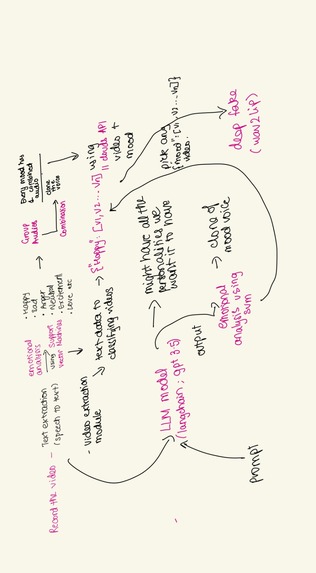 Record the video -
Text extraction
(speech to text)
emotional
analysis
using Support
Vector Machines
• Happy
• Sad
• Anger
• Neutral
• Excitement
• Love etc
Group
Audios
Every mood has
a combined
audio
clone
the
voice
Combination
- video extraction
module
text data to
classifying videos
{"Happy": [v1, v2 ... vn]
using
video +
mood
LLM model
(langchain; gpt 3.5)
might have all the
personalities we
want it to have
pick any
{"mood": [v1, v2 ... vn]}
video.
output
emotional
analysis using
svm
clone of
mood voice
deep fake
(wav2lip)
prompt